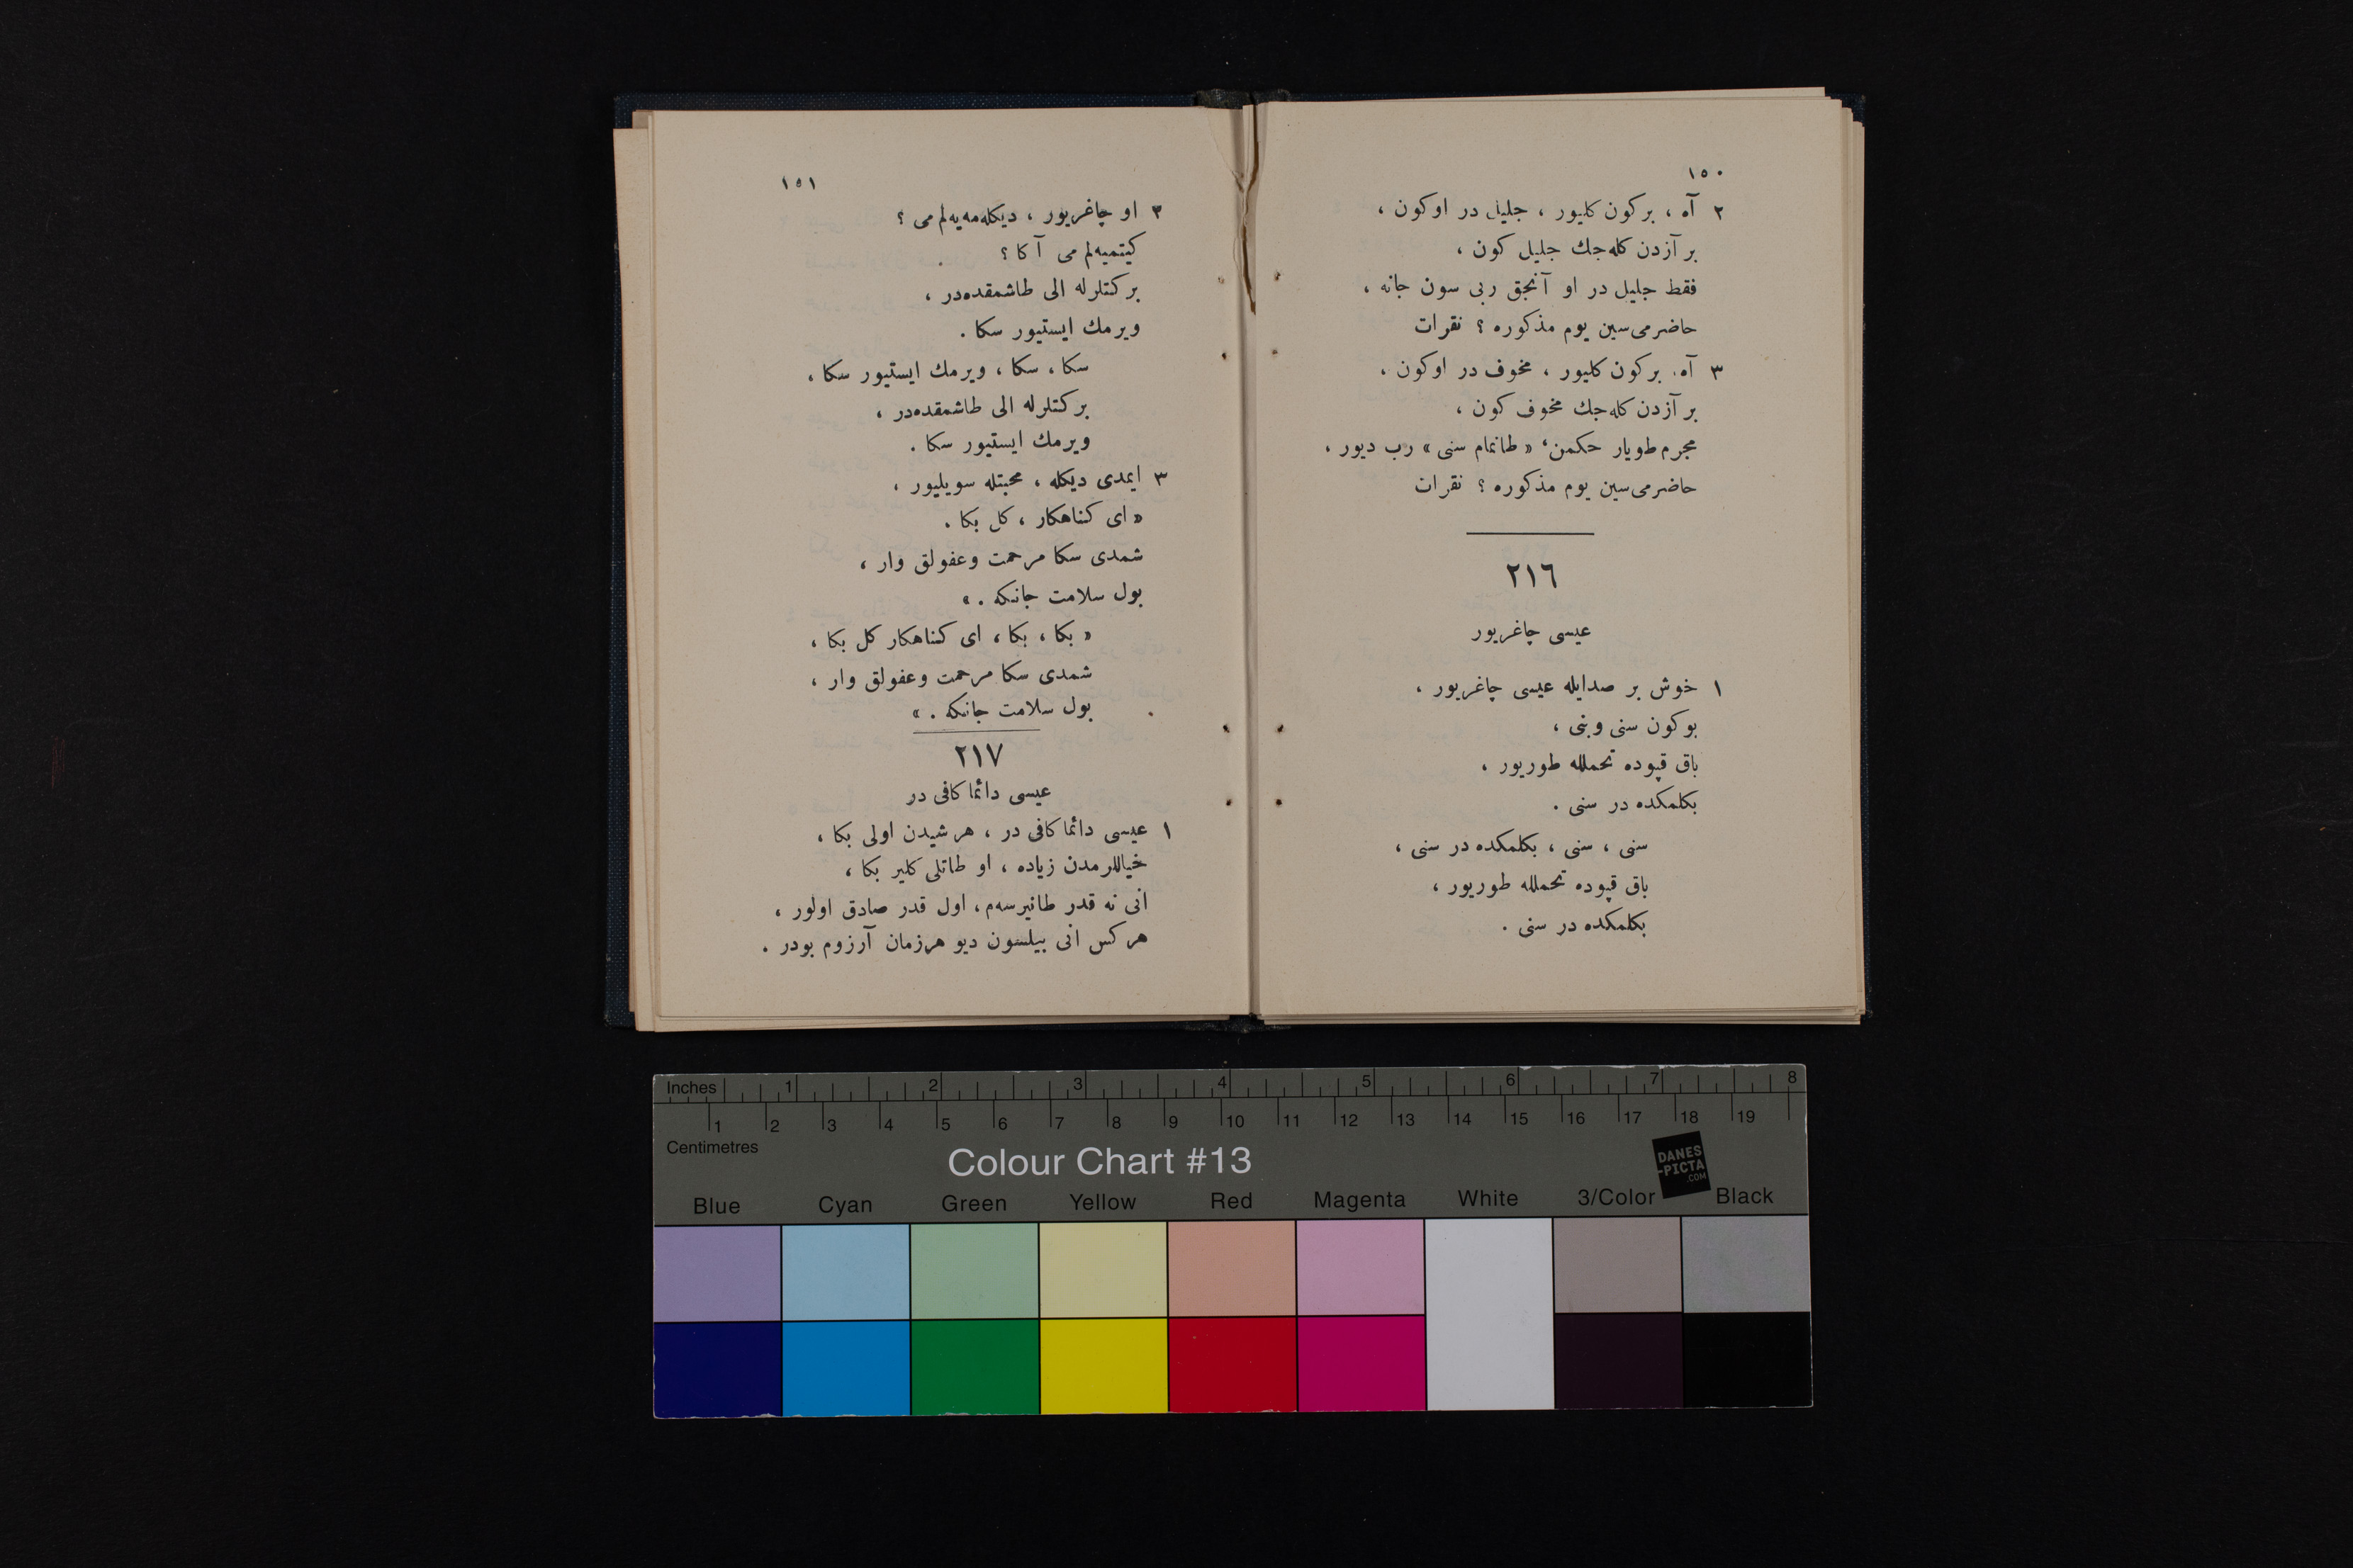 ١٥٠
٢ آه ، بركون كليور ، جليل در اوكون ،
بر آزدن كله‌جك جليل كون ،
فقط جليل در او آنجق ربى سون جانه ،
حاضرمى‌سين يوم مذكوره ؟ نقرات
٣ آه ، بركون كليور ، مخوف در اوكون ،
بر آزدن كله‌جك مخوف كون ،
مجرم طويار حكمن، «طانمام سنى» رب ديور ،
حاضرمى‌سين يوم مذكوره ؟ نقرات
٢١٦
عيسى چاغريور
١ خوش بر صدايله عيسى چاغريور ،
بوكون سنى وبنى ،
باق قپوده تحملله طوريور ،
بكلمكده در سنى .
سنى ، سنى ، بكلمكده در سنى ،
باق قپوده تحملله طوريور ،
بكلمكده در سنى .
١٥١
٢ او چاغريور ، ديكله‌مه‌يه‌لم مى ؟
كيتميه‌لم مى آكا ؟
بركتلرله الى طاشمقده‌در ،
ويرمك ايستيور سكا .
سكا ، سكا ، ويرمك ايستيور سكا ،
بركتلرله الى طاشمقده‌در ،
ويرمك ايستيور سكا .
٣ ايمدى ديكله ، محبتله سويليور ،
« اى كناهكار ، كل بكا .
شمدى سكا مرحمت وعفولق وار ،
بول سلامت جانكه . »
« بكا ، بكا ، اى كناهكار كل بكا ،
شمدى سكا مرحمت وعفولق وار ،
بول سلامت جانكه . »
٢١٧
عيسى دائما كافى در
١ عيسى دائما كافى در ، هر شيدن اولى بكا ،
خياللرمدن زياده ، او طاتلى كلير بكا ،
انى نه قدر طانيرسه‌م ، اول قدر صادق اولور ،
هركس انى بيلسون ديو هرزمان آرزوم بودر .
Inches 1 2 3 4 5 6 7 8
1 2 3 4 5 6 7 8 9 10 11 12 13 14 15 16 17 18 19
Centimetres
Colour Chart #13
DANES
-PICTA
.COM
Blue Cyan Green Yellow Red Magenta White 3/Color Black